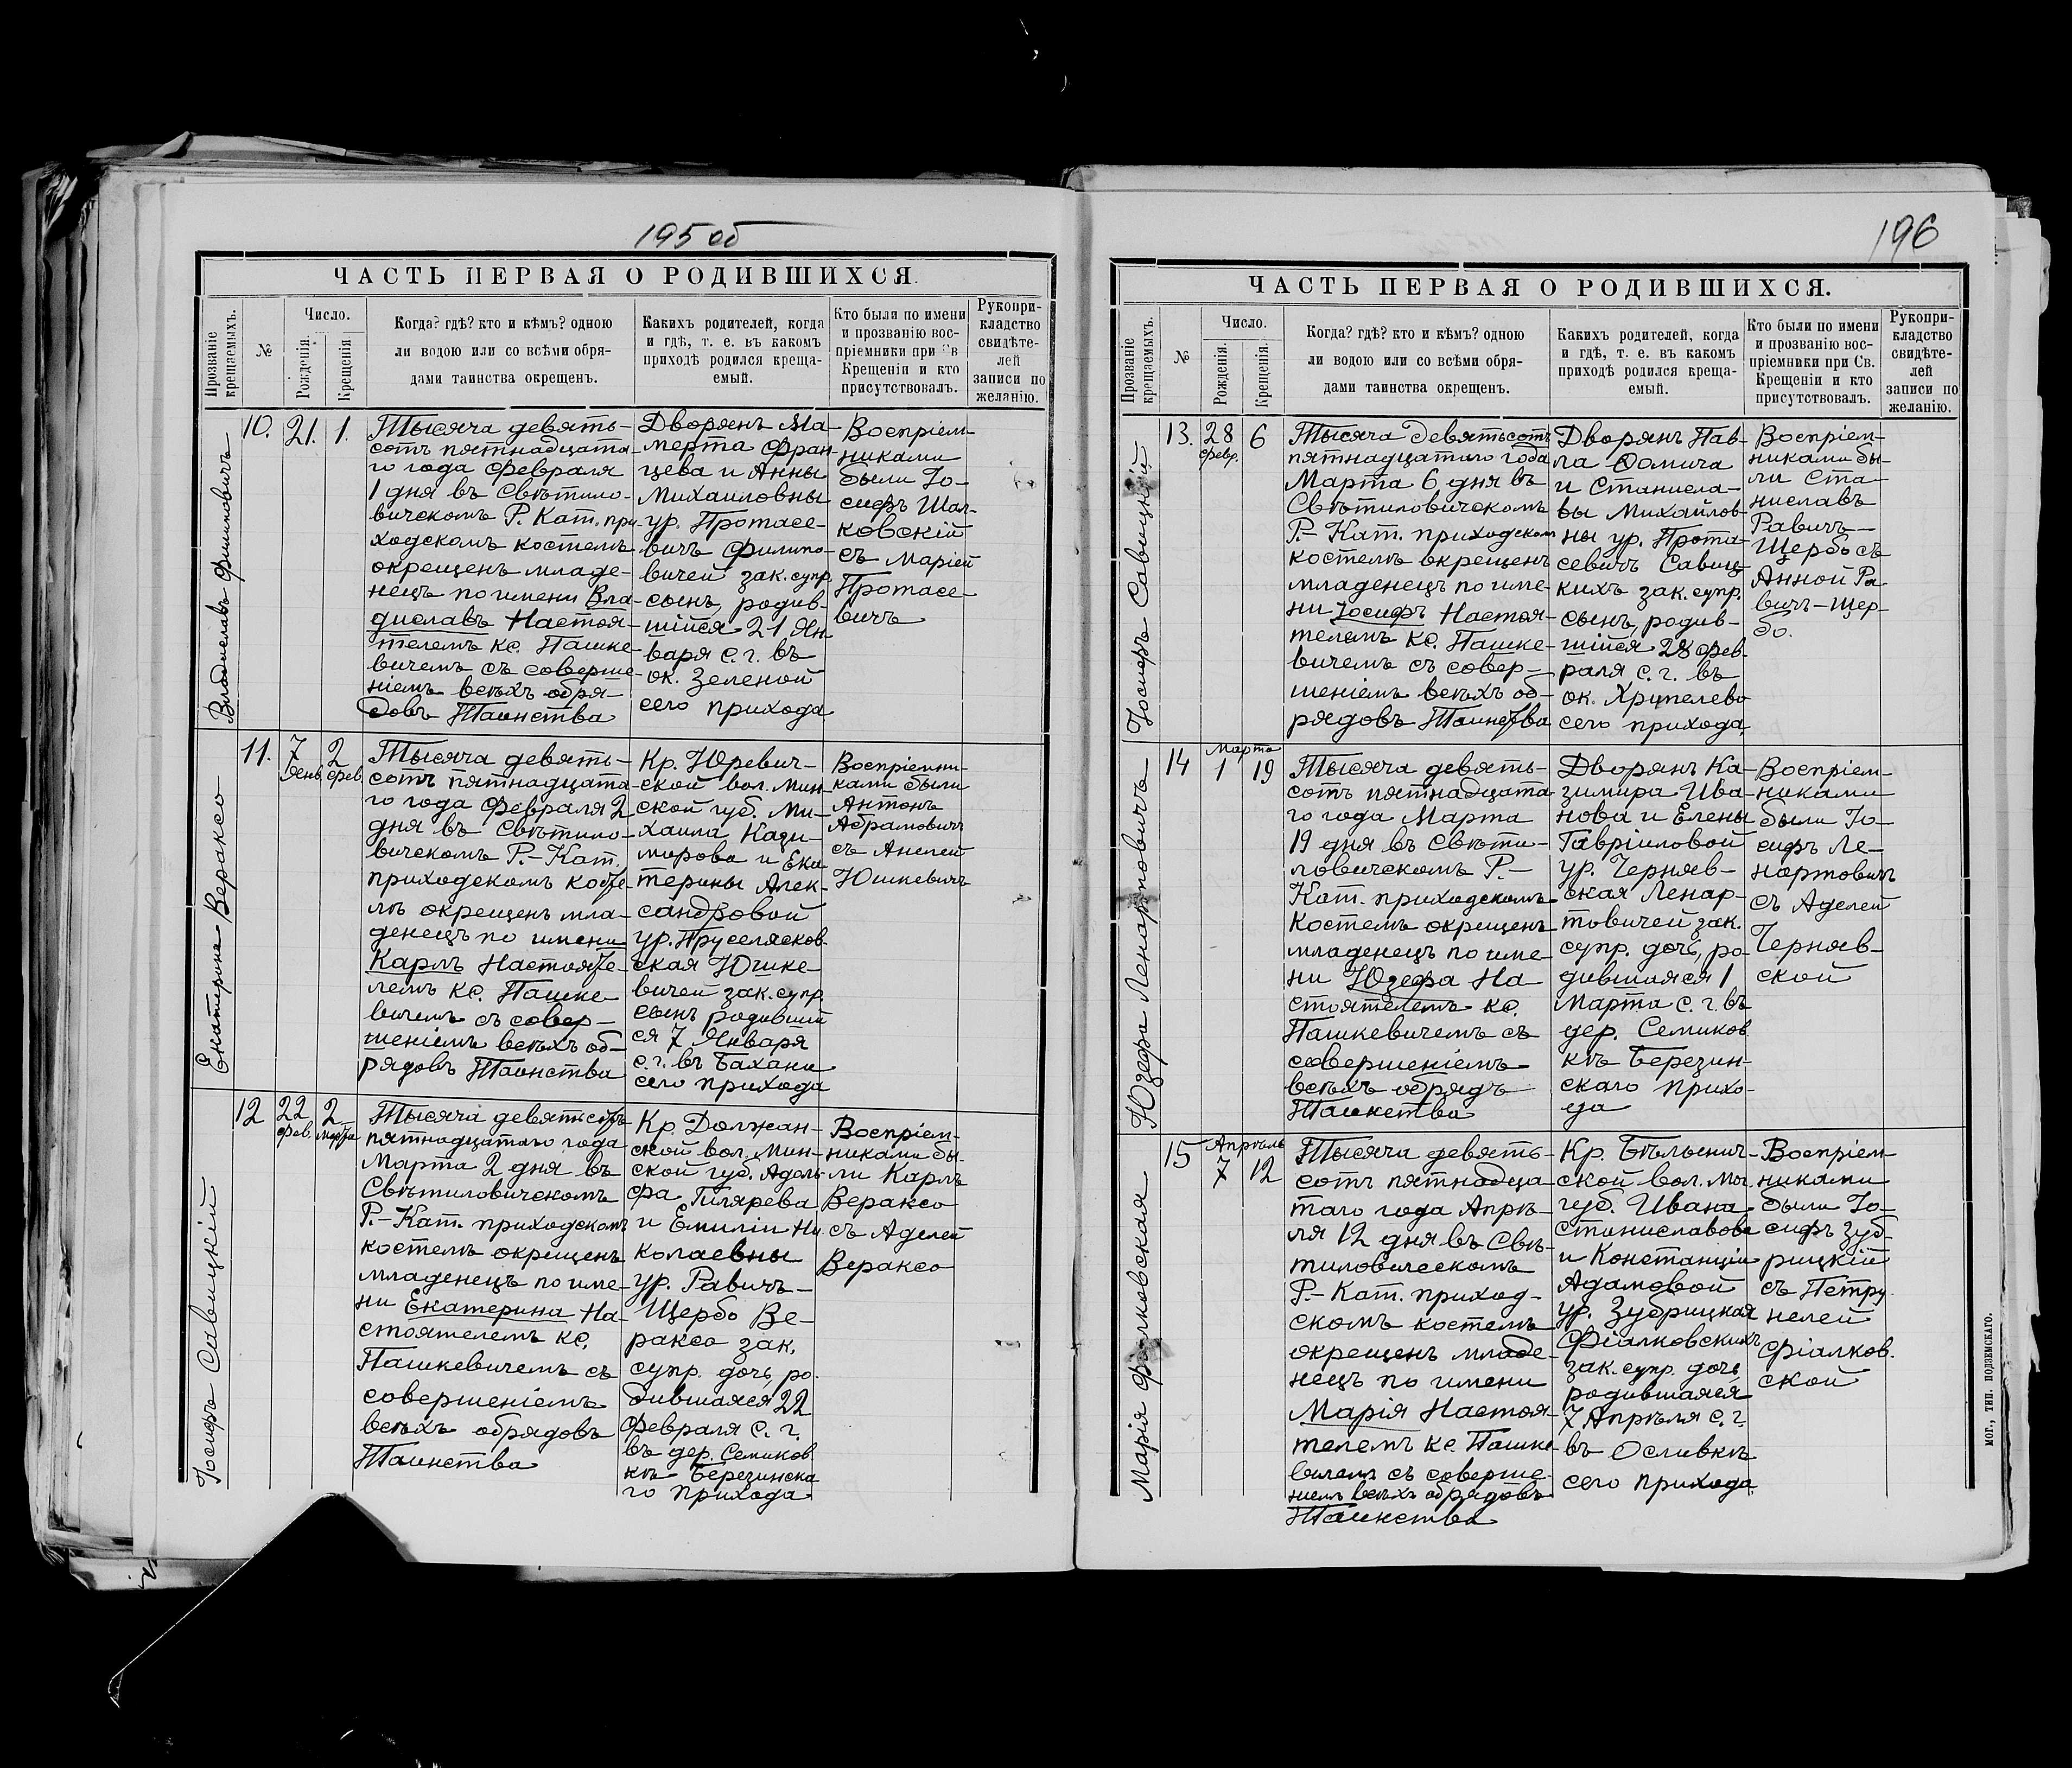 195 об
ЧАСТЬ ПЕРВАЯ О РОДИВШИХСЯ.
Прозваніе крещаемыхъ.
№
Число.
Рожденія.
Крещенія.
Когда? гдѣ? кто и кѣмъ? одною
ли водою или со всѣми обря-
дами таинства окрещенъ.
Какихъ родителей, когда
и гдѣ, т. е. въ какомъ
приходѣ родился креща-
емый.
Кто были по имени
и прозванію вос-
пріемники при Св
Крещеніи и кто
присутствовалъ.
Рукопри-
кладство
свидѣте-
лей
записи по
желанію.
Владиславъ Филиповичъ
10.
21.
1.
Тысяча девять-
сотъ пятнадцата-
го года Февраля
1 дня въ Свѣтило-
вичскомъ Р. Кат. при-
ходскомъ костелѣ
окрещенъ младе-
нецъ по имени Вла-
диславъ Настоя-
телемъ кс. Пашке-
вичемъ съ соверше-
ніемъ всѣхъ обря-
довъ Таинства
Дворянъ Ма-
мерта Фран-
цева и Анны
Михаиловны
ур. Протасе-
вичъ Филипо-
вичей зак. супр.
сынъ, родив-
шійся 21 Ян
варя с. г. въ
ок. Зеленой
сего прихода
Воспріем-
никами
были Іо-
сифъ Шал-
ковскій
съ Маріей
Протасе-
вичъ
Екатерина Вераксо
11.
7
Янв.
2
Фев.
Тысяча девять-
сотъ пятнадцата-
го года Февраля 2
дня въ Свѣтило-
вичскомъ Р.-Кат.
приходскомъ косте-
лѣ окрещенъ мла-
денецъ по имени
Карлъ Настояте-
лемъ кс. Пашке
вичемъ съ совер-
шеніемъ всѣхъ об-
рядовъ Таинства
Кр. Юревич-
ской вол. Мин-
ской губ. Ми-
хаила Кази-
мирова и Ека
терины Алек-
сандровой
ур. Пруселясков-
ская Юшке-
вичей зак. супр.
сынъ родивший
ся 7 Января
с. г. въ Бахани
сего прихода
Воспріемни-
ками были
Антонъ
Абрамовичъ
съ Анелей
Юшкевичъ
Іосифъ Савицкій
12
22
Фев.
2
Марта
Тысяча девятьсотъ
пятнадцатаго года
Марта 2 дня въ
Свѣтиловичскомъ
Р.-Кат. приходскомъ
костелѣ окрещенъ
младенецъ по име-
ни Екатерина На-
стоятелемъ кс.
Пашкевичемъ съ
совершеніемъ
всѣхъ обрядовъ
Таинства
Кр. Должан-
ской вол. Мин-
ской губ. Адоль
фа Гилярева
и Емиліи Ни
колаевны
ур. Равичъ-
Щербо Ве-
раксо зак.
супр. дочь, ро-
дившаяся 22
Февраля с. г.
въ дер. Семиков
кѣ Березинска
го прихода
Воспріем-
никами бы-
ли Карлъ
Вераксо
съ Аделей
Вераксо
196
ЧАСТЬ ПЕРВАЯ О РОДИВШИХСЯ.
Прозваніе крещаемыхъ.
№
Число.
Рожденія.
Крещенія.
Когда? гдѣ? кто и кѣмъ? одною
ли водою или со всѣми обря-
дами таинства окрещенъ.
Какихъ родителей, когда
и гдѣ, т. е. въ какомъ
приходѣ родился креща-
емый.
Кто были по имени
и прозванію вос-
пріемники при Св.
Крещеніи и кто
присутствовалъ.
Рукопри-
кладство
свидѣте-
лей
записи по
желанію.
Іосифъ Савицкій
13.
28
Февр.
6
Тысяча девятьсотъ
пятнадцатаго года
Марта 6 дня въ
Свѣтиловичскомъ
Р.-Кат. приходскомъ
костелѣ окрещенъ
младенецъ по име-
ни Іосифъ Настоя-
телемъ кс. Пашке-
вичемъ съ совер-
шеніемъ всѣхъ об-
рядовъ Таинства
Дворянъ Пав-
ла Ѳомича
и Станисла-
вы Михайлов-
ны ур. Прота-
севичъ Савиц
кихъ зак. супр.
сынъ, родив-
шійся 28 Фев-
раля с. г. въ
ок. Хрипелево
сего прихода
Воспріем-
никами бы-
ли Ста-
ниславъ
Равичъ-
Щербо съ
Анной Ра-
вичъ-Щер-
бо.
Юзефа Ленартовичъ
14
Марта
1
19
Тысяча девять-
сотъ пятнадцата
го года Марта
19 дня въ Свѣти-
ловичскомъ Р.-
Кат. приходскомъ
костелѣ окрещенъ
младенецъ по име-
ни Юзефа На
стоятелемъ кс.
Пашкевичемъ съ
совершеніемъ
всѣхъ обрядъ
Таинства
Дворянъ Ка-
зимира Ива-
нова и Елены
Гавріиловой
ур. Черняв-
ская Ленар-
товичей зак.
супр. дочь, ро-
дившаяся 1
Марта с. г. въ
дер. Семиков
кѣ Березин-
скаго прихо-
да
Воспріем-
никами
были Іо-
сифъ Ле-
нартовичъ
съ Аделей
Черняв-
ской
Марія Фіалковская
15
Апрѣль
7
12
Тысяча девять-
сотъ пятнадца
таго года Апрѣ-
ля 12 дня въ Свѣ-
тиловичскомъ
Р.-Кат. приход-
скомъ костелѣ
окрещенъ младе-
нецъ по имени
Марія Настоя-
телемъ кс. Пашке
вичемъ съ соверше-
ніемъ всѣхъ обрядовъ
Таинства
Кр. Бѣльенич-
ской вол. Мог.
губ. Ивана
Станиславова
и Констанціи
Адамовой
ур. Зубрицкая
Фіалковскихъ
зак. супр. дочь
родившаяся
7 Апрѣля с. г.
въ Осливкѣ
сего прихода
Воспріем-
никами
были Іо-
сифъ Зуб-
рицкій
съ Петру-
нелей
Фіалков-
ской
МОГ., ТИП. ПОДЗЕМСКАГО.